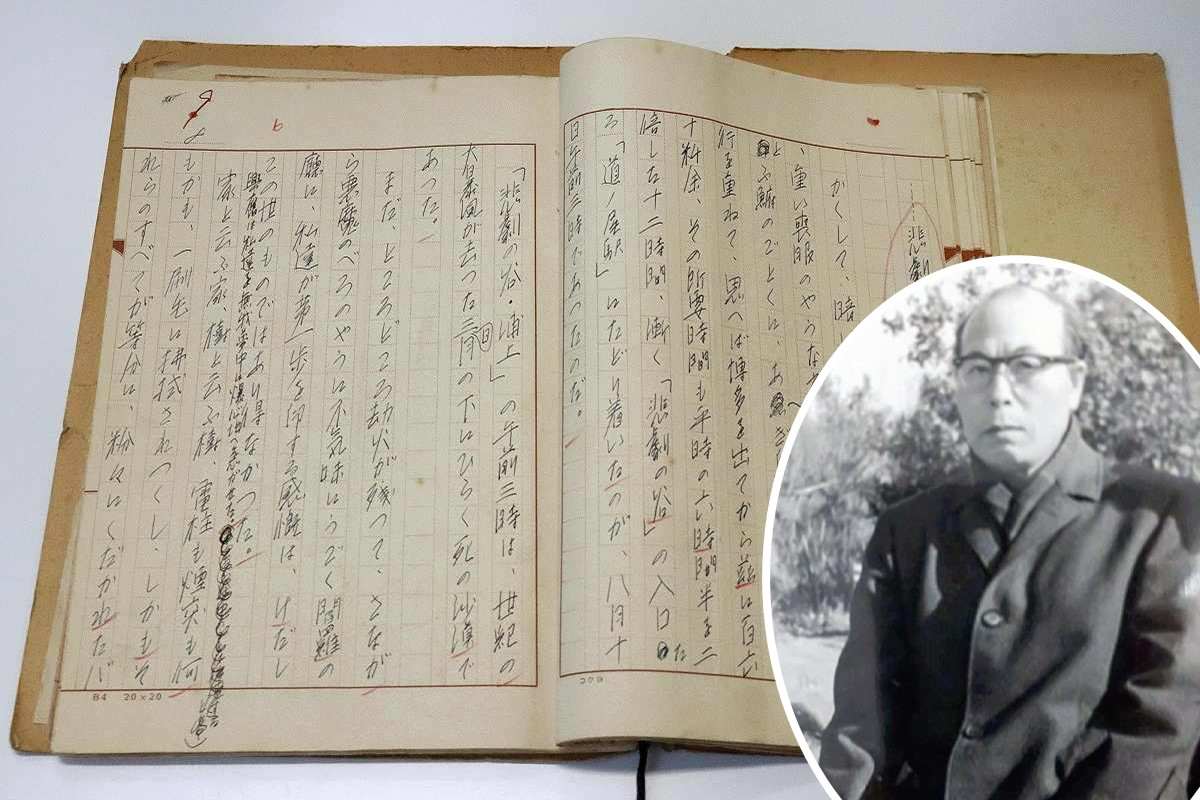 悲劇
かくして、暗
、重い喪服のやうな
とふ鯨のごとくに、あ
行を重ねて、思へば博多を出てから茲に百六
十粁余、その所要時間も平時の六時間半を二
倍した十二時間、漸く「悲劇の谷」の入口た
る「道ノ尾駅」にたどり着いたのが、八月十
日午前三時であつたのだ。
8
6
「悲劇の谷・浦上」の午前三時は、世紀の
大暴風が去つた三日月の下にひらく死の沙漠で
あつた。
まだ、ところどころ劫火が残つて、さなが
ら悪魔のべろのやうに不気味にうごく閻羅の
廳に、私達が第一歩を印する感慨は、けだし
この世のものではあり得なかつた。
興奮は私達を無我夢中に爆心街へ急がせた。
家と云ふ家、樹と云ふ樹、電柱も煙突も何
もかも、一刷毛に拂拭されつくし、しかもそ
れらのすべてが等分に、粉々にくだかれたバ
B4 20×20
コクヨ